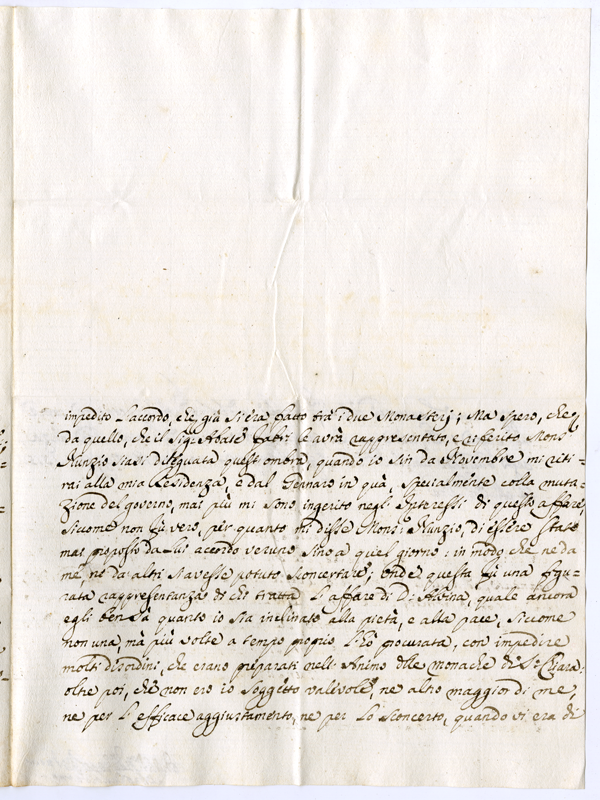 impedito l'accordo, che già s'era fatto trà i due Monasterj; Ma spero, che
da quello, che il Sig.r Abate le avrà rappresentato, e riferito Mons.r
Nunzio siasi dileguata quest'ombra, quando io sin da Novembre mi riti=
rai alla mia Residenza, e dal Gennaro in quà, specialmente colla muta=
zione del governo, mai più mi sono ingerito negli Interessi di questo affare,
siccome non fù vero, per quanto mi disse Mons.r Nunzio, di essere stato
mai proposto da Lui acordo veruno sino a quel giorno: in modo che ne da
me, ne da altri s'avesse potuto sconcertare; onde questa fù una figu=
rata rappresentanza di chi tratta l'affare di D. quale ancora
egli ben sà quanto io sia inclinato alla pietà, e alla pace, siccome
non una, mà più volte a tempo proprio l'hò procurata, con impedire
molti disordini, che erano preparati nell'Animo delle monache di S.ta Chiara:
oltre poi, che non ero io soggetto valevole, ne altro maggior di me,
ne per l'efficace aggiustamento, ne per lo sconcerto, quando vi era di